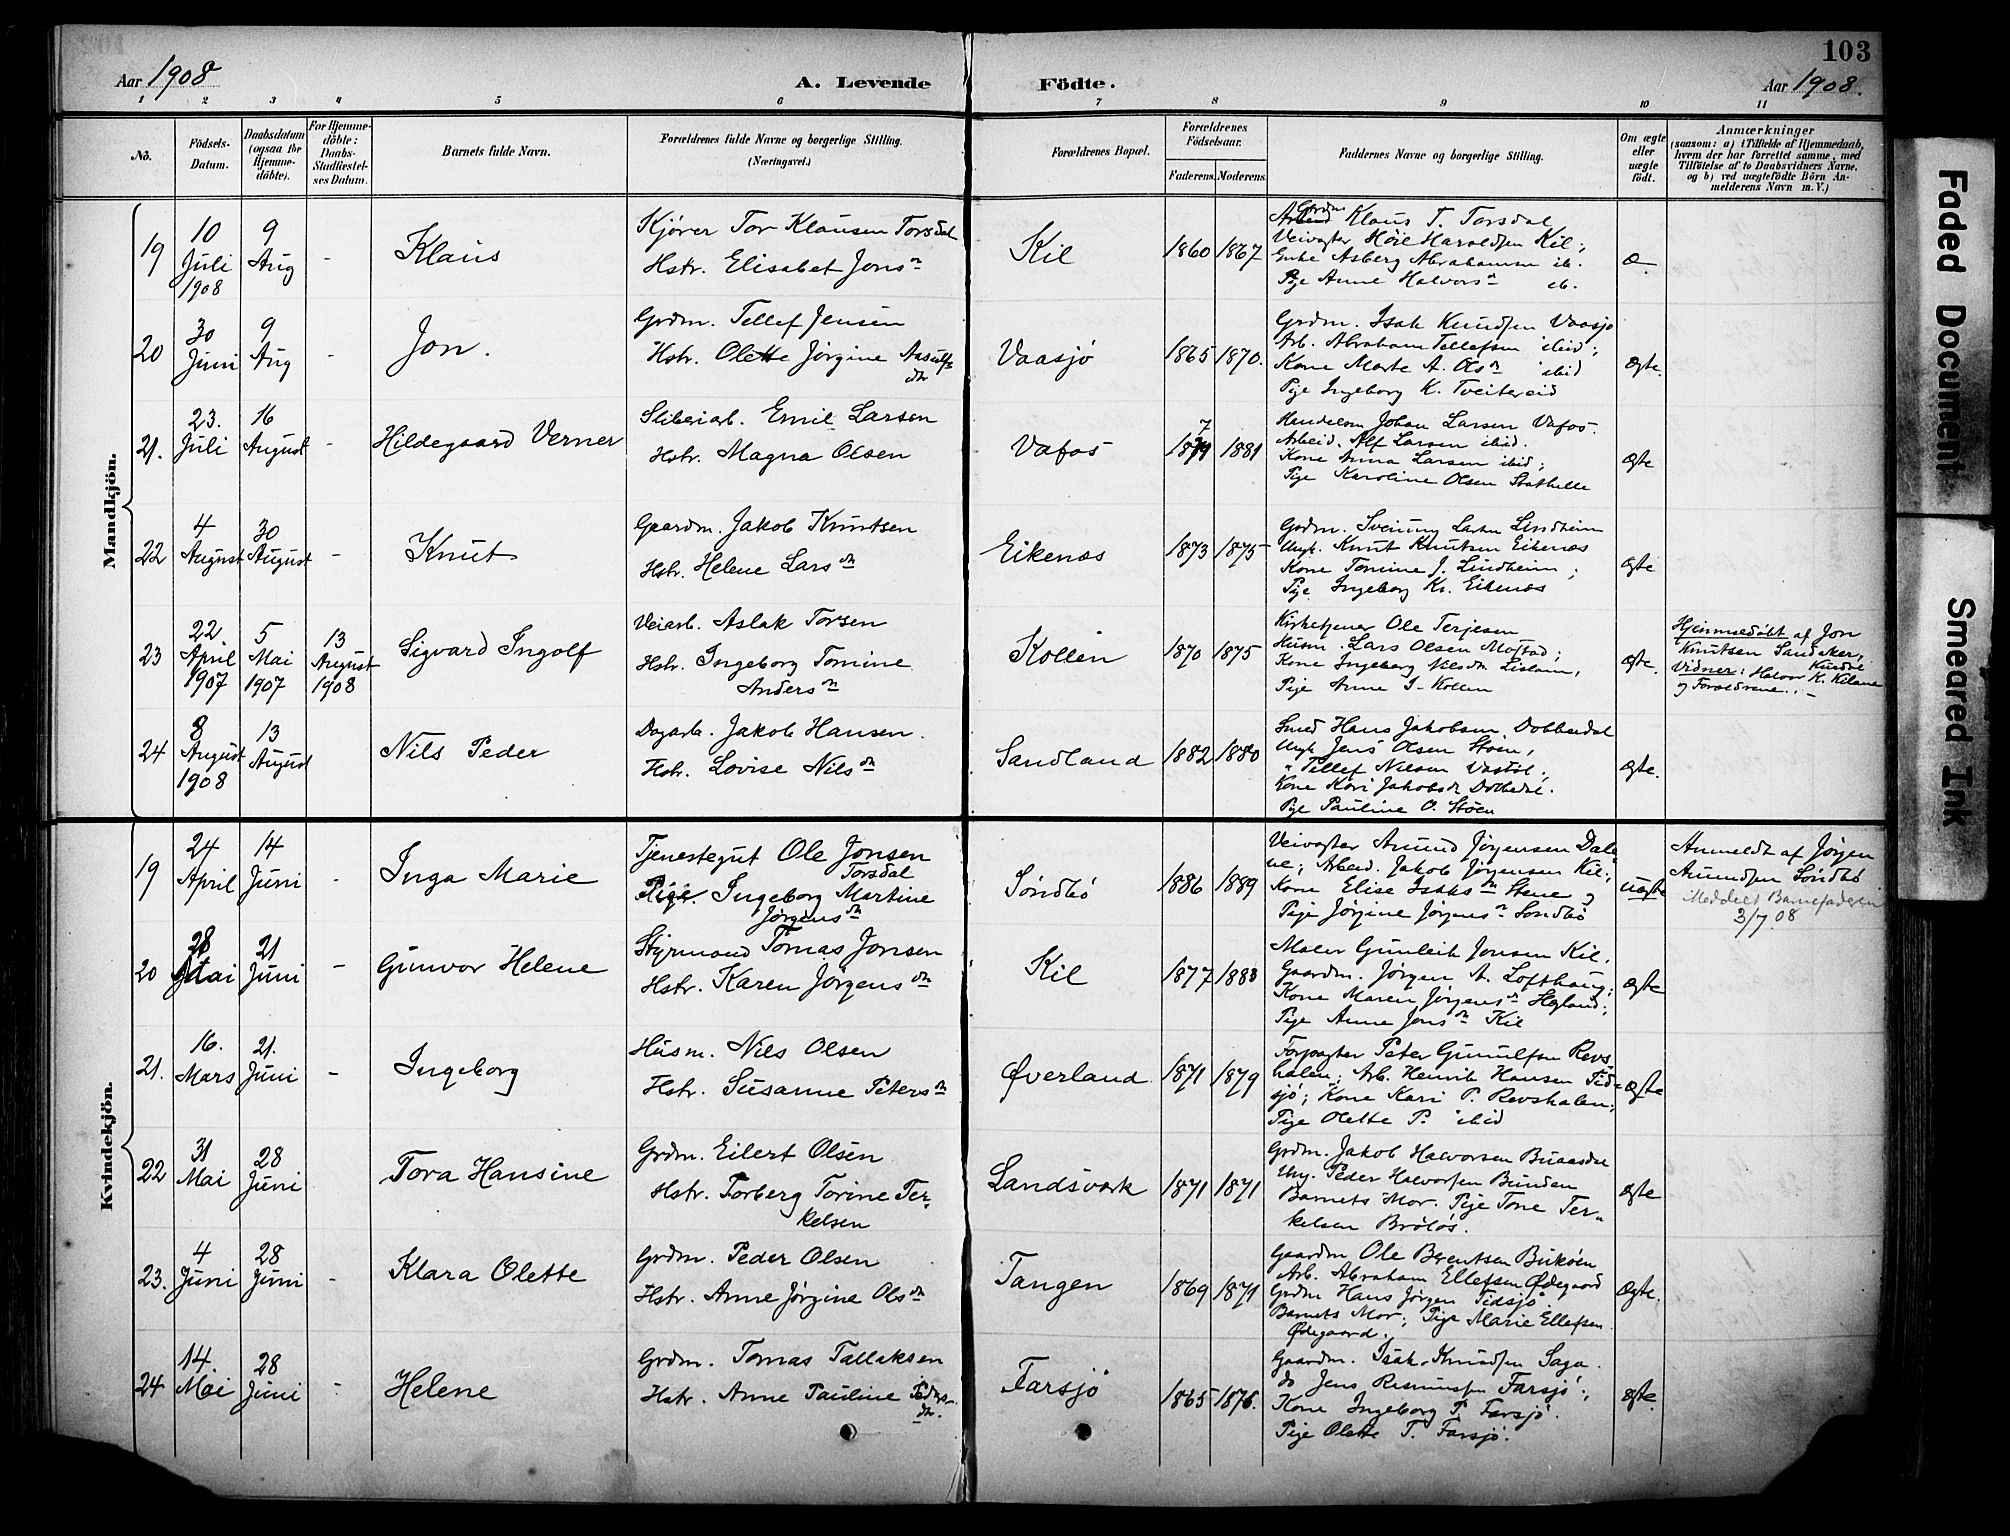 103
Aar 1908
A. Levende
Födte.
Aar 1908.
1 2 3 4 5 6 7 8 9 10 11
Nö.
Födsels-
Datum.
Daabsdatum
(ogsaa för
Hjemme-
döbte).
For Hjemme-
döbte:
Daabs-
Stadfæstel-
ses Datum.
Barnets fulde Navn.
Forældrenes fulde Navne og borgerlige Stilling.
(Næringsvei.)
Forældrenes Bopæl.
Forældrenes
Födselsaar.
Faderens.
Moderens.
Faddernes Navne og borgerlige Stilling.
Om ægte
eller
uægte
födt.
Anmærkninger
(saasom: a) i Tilfælde af Hjemmedaab,
hvem der har forrettet samme, med
Tilföielse af to Daabsvidners Navne,
og b) ved uægtefödte Börn An-
melderens Navn m. V.)
Mandkjön.
19
10
Juli
1908
9
Aug
-
Klaus
Kjører Tor Klausen Torsdal
Hstr. Elisabet Jonsn
Kil
1860
1867
Grdm
Klaus T. Torsdal
Veivogter Høie Haroldsen Kil;
Enke Asberg Abrahamsen ib.
Pige Anne Halvorsn ib.
æ.
20
30
Juni
9
Aug
-
Jon.
Grdm. Tellef Jensen
Hstr. Olette Jørgine Aasulfs
dtr
Vaasjø
1865
1870.
Grdm. Isak Knudsen Vaasjø
Arb. Abraham Tellefsen ibid;
Kone Marte A. Olsn ibid
Pige Ingeborg K. Tveitereid
ægte.
21.
23.
Juli
16
August
-
Hildegaard Verner
Sliberiarb. Emil Larsen
Hstr. Magna Olsen
Vafos
7
1879
1881
Handelsm Johan Larsen Vafos.
Arbeid. Alf Larsen ibid.
Kone Anna Larsen ibid;
Pige Karoline Olsen Stathelle
ægte
22
4
August
30
August
-
Knut
Gaardm. Jakob Knutsen
Hstr. Helene Larsdtr
Eikenæs
1873
1875
Grdm. Sveinung Larsen Lindheim
Ungk. Knut Knutsen Eikenæs
Kone Tomine J. Lindheim;
Pige Ingeborg Kr. Eikenæs
ægte
23
22.
April
1907
5
Mai
1907
13
August
1908
Sigvard Ingolf
Veiarb. Aslak Torsen
Hstr. Ingeborg Tomine
Andersn
Kollen
1870
1875
Kirketjener Ole Terjesen
Husm. Lars Olsen Mostad;
Kone Ingeborg Nilsdtr Lislann,
Pige Anne I. Kollen
ægte.
Hjemmedøbt af Jon
Knutsen Sandaker,
Vidner: Halvor K. Kelane
og Forældrene. -
24
8
August
1908
13
August
Nils Peder
Dagarb. Jakob Hansen.
Hstr. Lovise Nilsdtr
Sandland
1882
1880
Smed Hans Jakobsen, Dobbedal
Ungk Jens Olsen Støen,
" Tellef Nilsen Vastøl;
Kone Kari Jakobsdtr Dobbedal.
Pige Pauline O. Støen
ægte.
Kvindekjön.
19
24
April
14
Juni
-
Inga Marie
Tjenestegut Ole Jonsen
Torsdal
Pige. Ingeborg Martine
Jørgensdtr
Søndbø
1886
1889
Veivogter Amund Jørgensen Dale
ne; Arbeid. Jakob Jørgensen Kil;
Kone Elise Isaksn Stene og
Pige Jørgine Jørgensn Sondbø
uægte
Anmeldt af Jørgen
Amundsen Søndbø
Meddelt Barnefaderen
3/7 08
20
28
Mai
21
Juni
-
Gunvor Helene
Styrmand Tomas Jonsen
Hstr. Karen Jørgensdtr
Kil
1877
1883
Maler Gunleik Jonsen Kil,
Gaardm. Jørgen A. Lofthaug;
Kone Maren Jørgensn Hegland;
Pige Anne Jonsdtr Kil
ægte
21.
16.
Mars
21.
Juni
-
Ingeborg
Husm. Nils Olsen
Hstr. Susanne Petersn
Øverland
1871
1879
Forpagter Peter Gunulfsen Revs
halen; Arb. Henrik Hansen Tid=
sjø; Kone Kari P. Revshalen;
Pige Olette P. ibid
ægte
22
31
Mai
28
Juni
Tora Hansine
Grdm. Eilert Olsen
Hstr. Torberg Torine Ter-
kelsen
Landsverk
1871
1871
Grdm. Jakob Halvorsen Buaasdal
Ung. Peder Halvorsen Bunden
Barnets Mor. Pige Tone Ter-
kelsen Bråtøs.
ægte
23.
4
Juni
28
Juni
-
Klara Olette
Grdm. Peder Olsen
Hstr. Anne Jørgine Olsdtr
Tangen
1869
1871
Gaardm Ole Berentsen Bukøen
Arb. Abraham Ellefsen Ødegaard
Grdm Hans Jørgen Tidsjø
Barnets Mor; Pige Marie Ellefsen
Ødegaard.
Ægte.
24
14.
Mai
28
Juni
-
Helene
Grdm. Tomas Tallaksen
Hstr. Anne Pauline Peders-
dtr.
Farsjø
1865
1876.
Gaardm. Isak Knudsen Saga.
do Jens Rasmussen Farsjø;
Kone Ingeborg T. Farsjø.
Pige Olette T. Farsjø.
ægte.
Faded Document
Smeared Ink